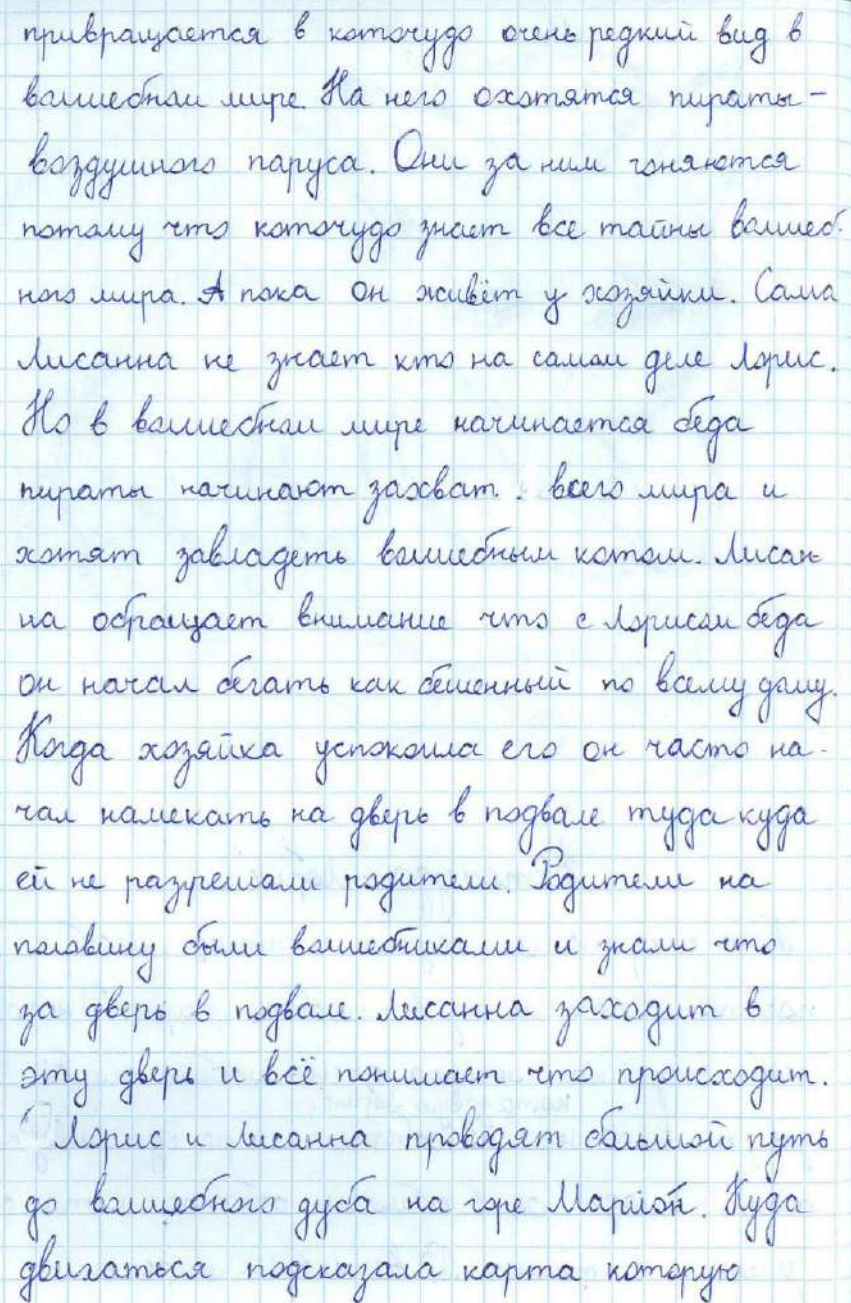 привращается в коточудо очень редкий вид в
волшебном мире. На него охотятся пираты -
воздушного паруса. Они за ним гоняются
потому что коточудо знает все тайны волшеб-
ного мира. А пока он живёт у хозяйки. Сама
Лисанна не знает кто на самом деле Лорис.
Но в волшебном мире начинается беда
пираты начинают захват всего мира и
хотят завладеть волшебным котом. Лисан-
на обращает внимание что с Лорисом беда
он начал бегать как бешенный по всему дому.
Когда хозяйка успокоила его он часто на-
чал намекать на дверь в подвале туда куда
ей не разрешали родители. Родители на
половину были волшебниками и знали что
за дверь в подвале. Лисанна заходит в
эту дверь и всё понимает что происходит.
Лорис и Лисанна проводят большой путь
до волшебного дуба на горе Марион. Куда
двигаться подсказала карта которую